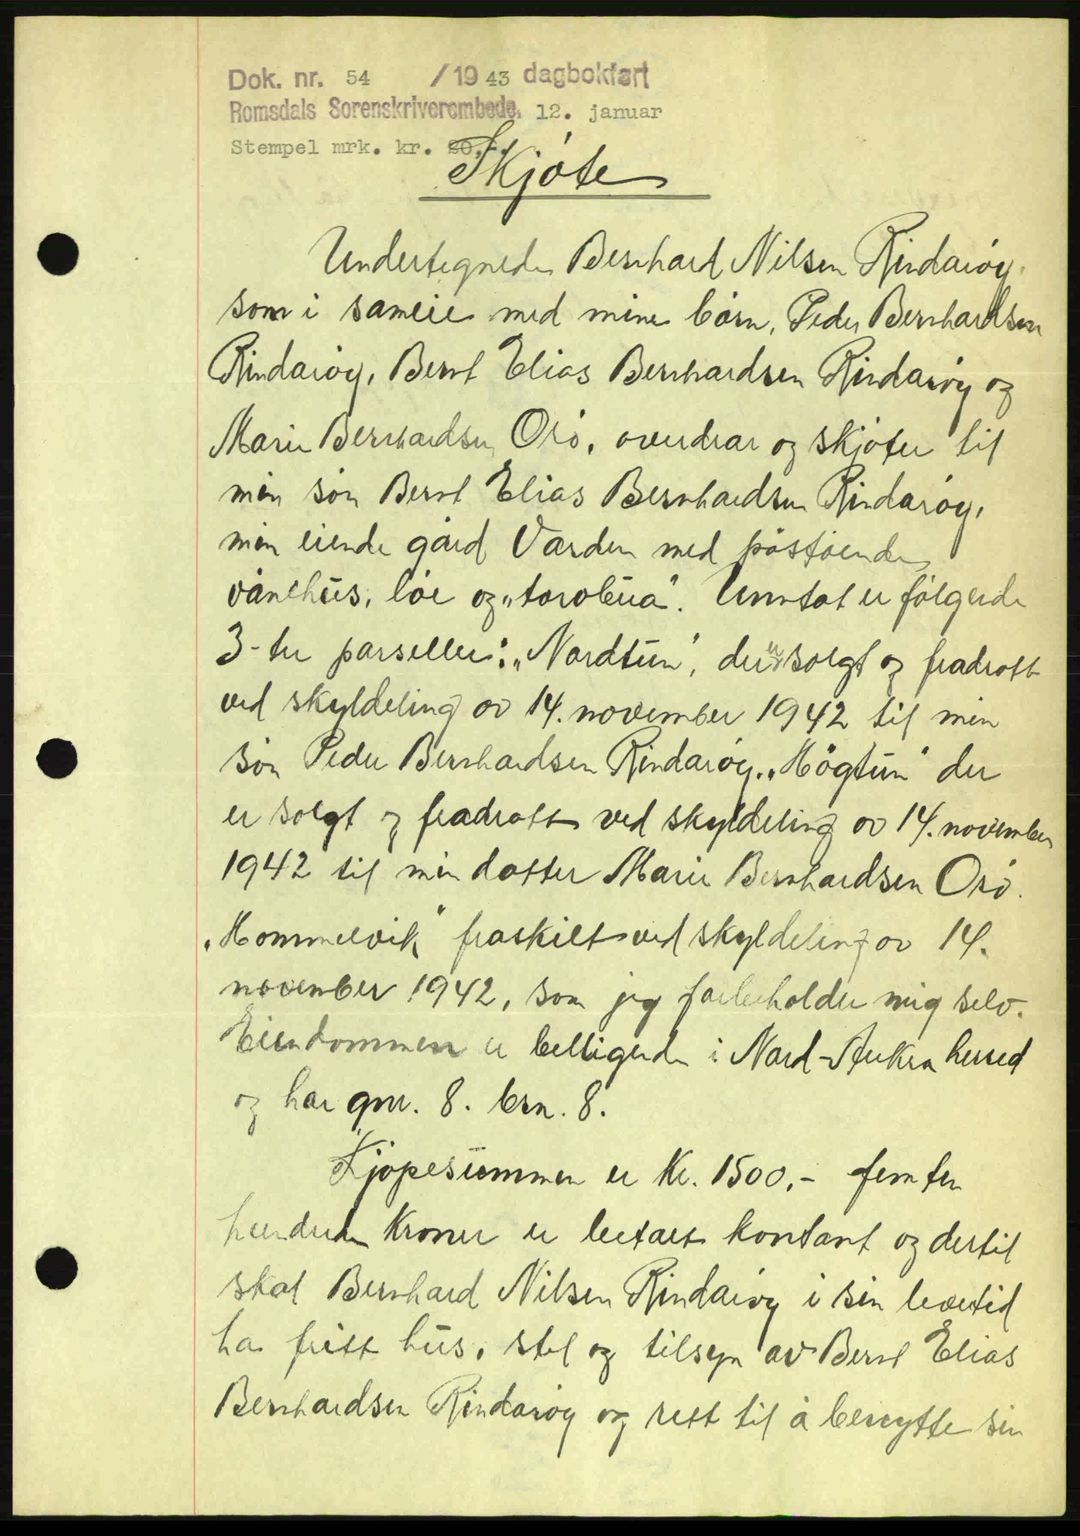 Dok. nr. 54 /1943 dagbokført
Romsdals Sorenskriverembede, 12. januar
Stempel mrk. kr. 20,-.
Skjøte
Undertegnede Bernhard Nilsen Rindarøy,
som i sameie med mine børn, Peder Bernhardsen
Rindarøy, Bernt Elias Bernhardsen Rindarøy og
Marie Bernhardsen Orø, overdrar og skjøter til
min søn Bernt Elias Bernhardsen Rindarøy,
min eiende gård Varden med påståenden
vånehus, løe og „torvbua". Unntat er følgende
3-tre parseller: „Nordtun", der er solgt og fradratt
ved skyldeling av 14. november 1942 til min
søn Peder Bernhardsen Rindarøy. „Høgtun" der
er solgt og fradratt ved skyldeling av 14. november
1942 til min datter Marie Bernhardsen Orø.
„Hommelvik" fraskilt ved skyldeling av 14.
november 1942, som jeg forbeholder mig selv.
Eiendommen er beliggende i Nord-Aukra herred
og har gnr. 8. brn. 8.
Kjøpesummen er Kr. 1500,- femten
hundrede kroner er betalt kontant og dertil
skal Bernhard Nilsen Rindarøy i sin levetid
ha fritt hus, stel og tilsyn av Bernt Elias
Bernhardsen Rindarøy og rett til å benytte sin